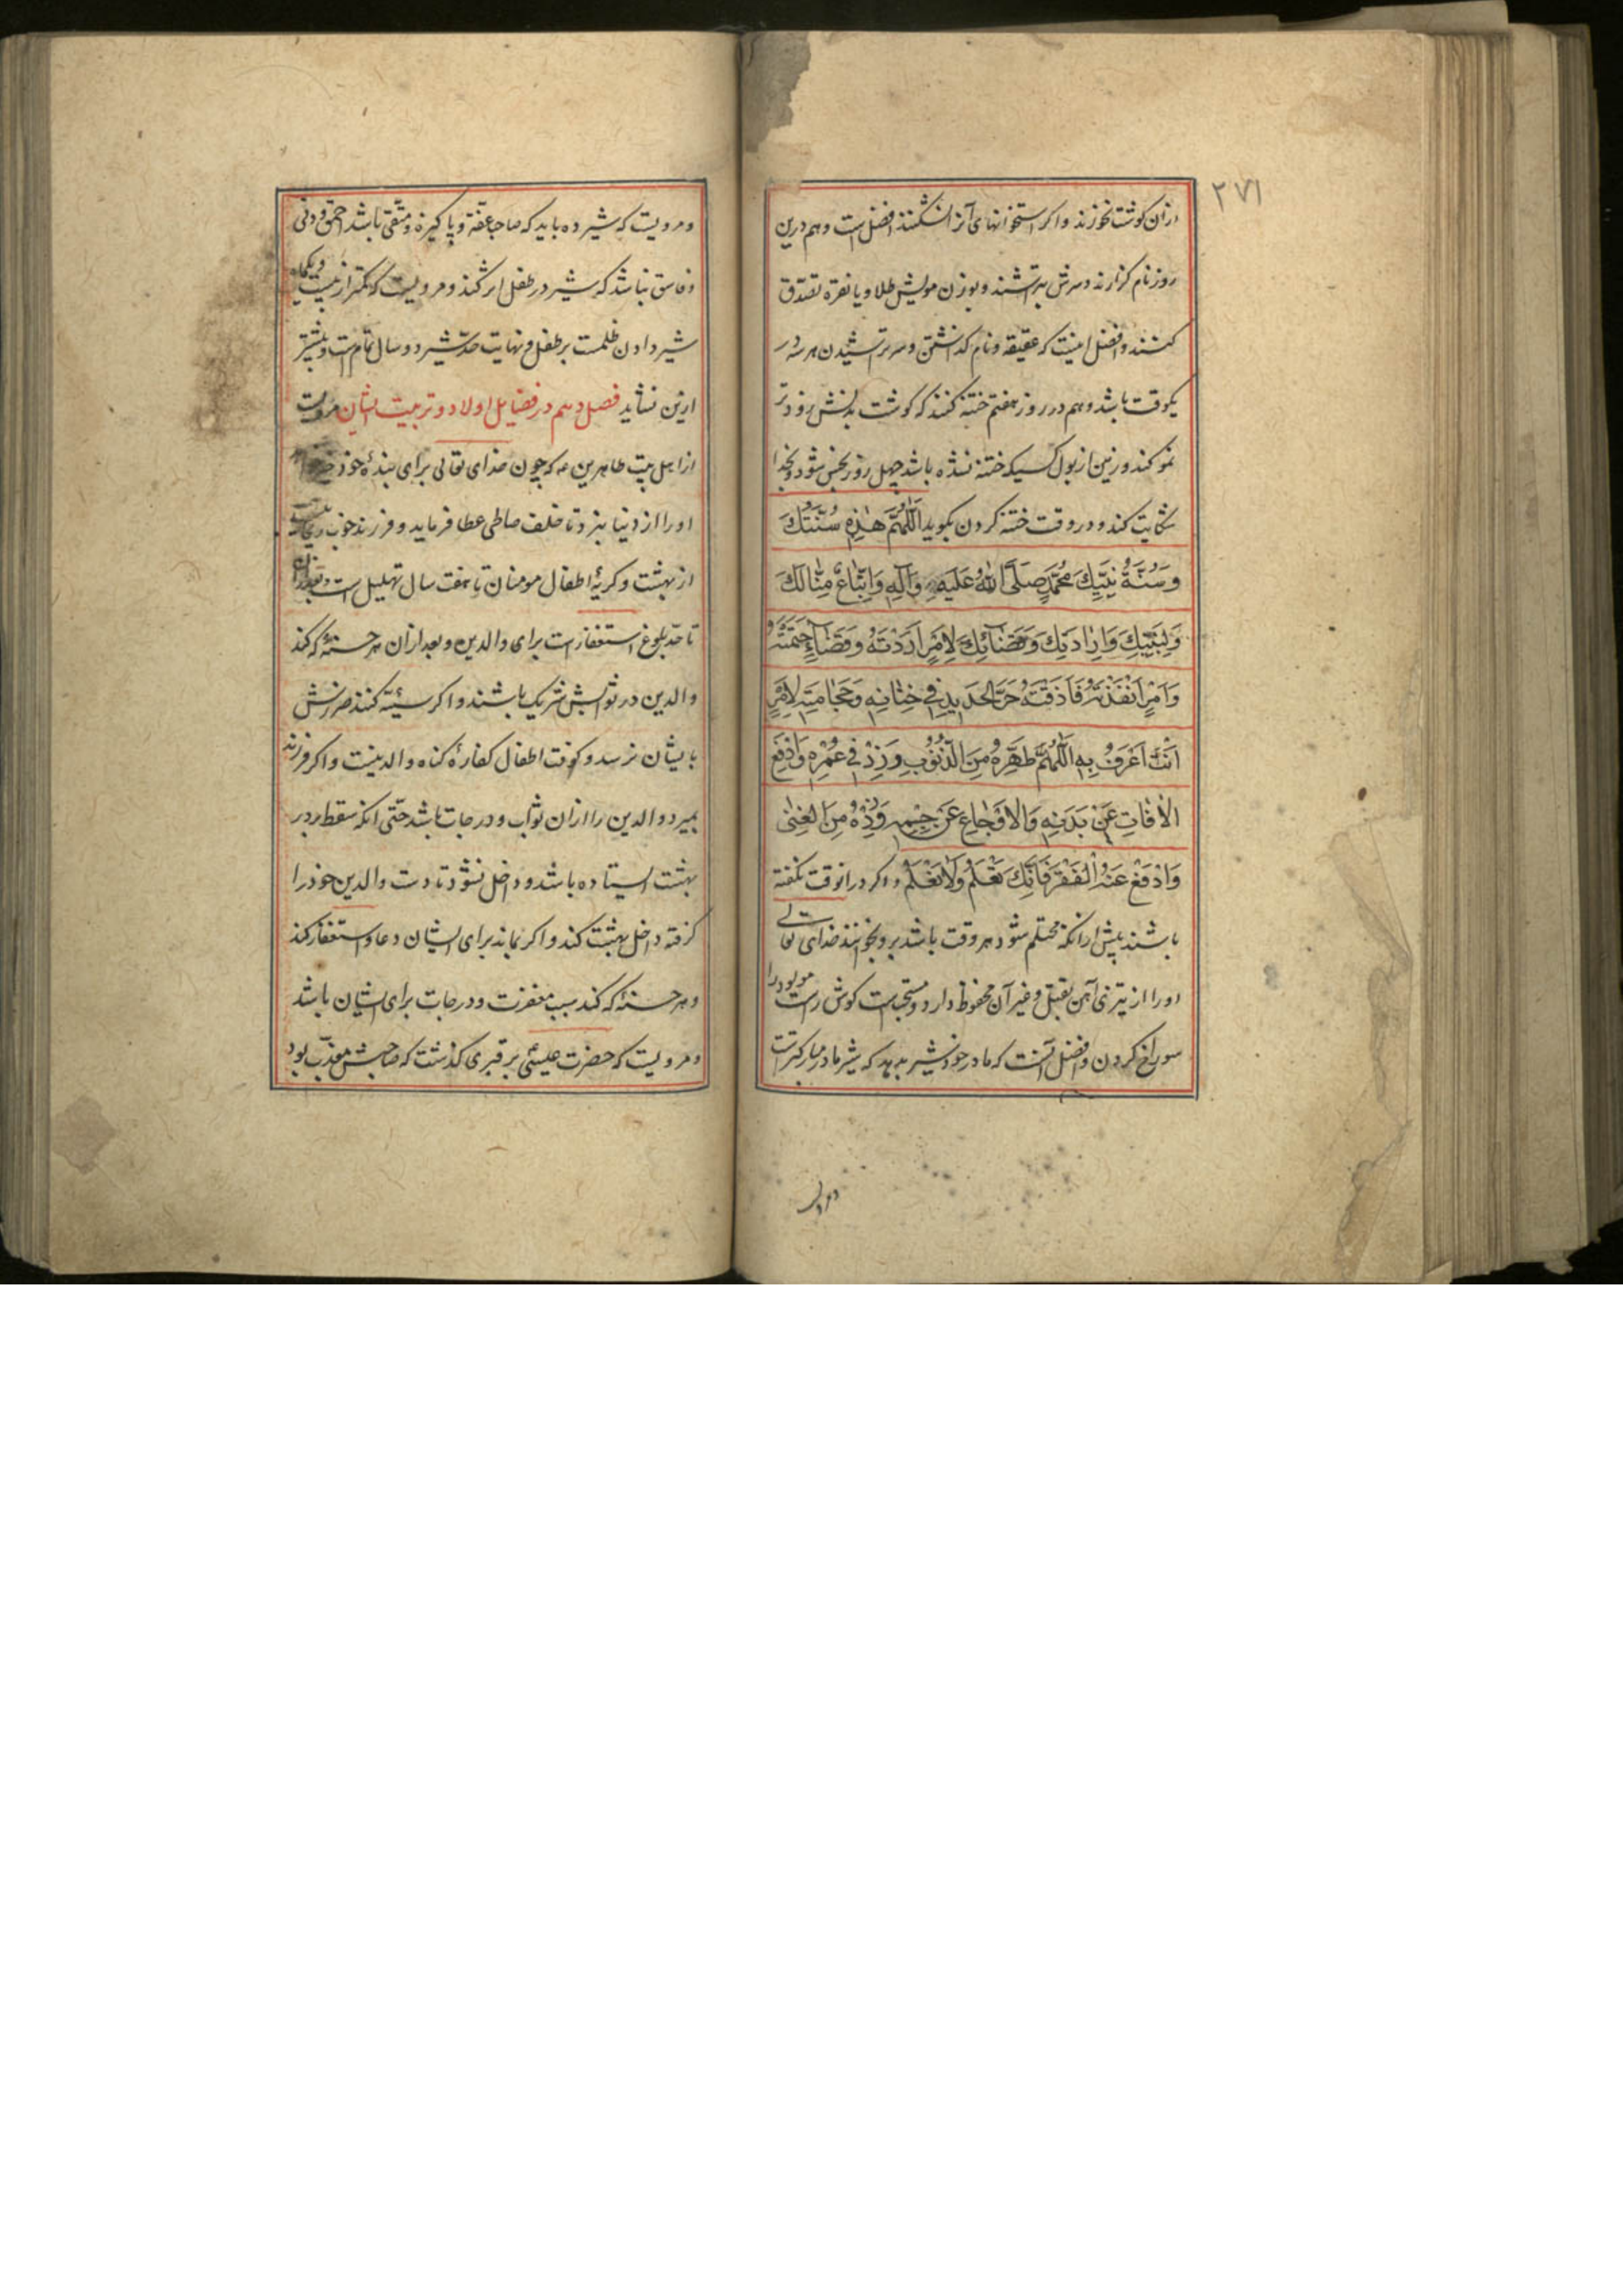 ۲۷۱
ازان گوشت نخورند و اگر استخوانهای آنرا نشکنند افضل است و هم درین
روز نام گزارند و سرش بتراشند و بوزن مویش طلا و یا نقره تصدق
کنند و افضل اینست که عقیقه و نام گذاشتن و سر تراشیدن هر سه در
یکوقت باشد و هم در روز هفتم ختنه کنند که گوشت بدنش زودتر
نمو کند و زمین از بول کسیکه ختنه نشده باشد چهل روز نجس شود و بخدا
شکایت کند و در وقت ختنه کردن بگوید اَللّٰهُمَّ هٰذِهٖ سُنَّتُكَ
وَسُنَّةُ نَبِيِّكَ مُحَمَّدٍ صَلَّى اللّٰهُ عَلَيْهِ وَآلِهٖ وَاِتِّبَاعٌ مِنَّا لَكَ
وَلِنَبِيِّكَ وَاِرَادَتِكَ وَقَضَائِكَ لِاَمْرٍ اَرَدْتَهُ وَقَضَاءٍ حَتَمْتَهُ
وَاَمْرٍ اَنْفَذْتَهُ فَاَذَقْتَهُ حَرَّ الْحَدِيدِ فِي خِتَانِهٖ وَحَجَامَتِهٖ لِاَمْرٍ
اَنْتَ اَعْرَفُ بِهٖ اَللّٰهُمَّ طَهِّرْهُ مِنَ الذُّنُوبِ وَزِدْ فِي عُمْرِهٖ وَادْفَعْ
الْاٰفَاتِ عَنْ بَدَنِهٖ وَالْاَوْجَاعَ عَنْ جِسْمِهٖ وَزِدْهُ مِنَ الْغِنٰى
وَادْفَعْ عَنْهُ الْفَقْرَ فَاِنَّكَ تَعْلَمُ وَلَا نَعْلَمُ و اگر درانوقت نگفته
باشند پیش ازانکه محتلم شود هر وقت باشد برو بخوانند خدای تعالی
او را از تیزی آهن بقتل و غیر آن محفوظ دارد و مستحب است گوش راست مولود را
سوراخ کردن و افضل آنست که مادر خود شیر بدهد که شیر مادر مبارکتر است
و مرویست که شیر ده باید که صاحب عفّة و پاکیزه و متّقی باشد احمق و دنی
و فاسق نباشد که شیر در طفل اثر کند و مرویست که کمتر از بیست و یکماه
شیر دادن ظلمست بر طفل و نهایت حدّ شیر دو سال تمام است و بیشتر
ازین نشاید فصل دهم در فضایل اولاد و تربیت ایشان مرویست
از اهل بیت طاهرین ع که چون خدای تعالی برای بندۀ خود
او را از دنیا نبرد تا خلف صالحی عطا فرماید و فرزند خوب
از بهشت و گریۀ اطفال مومنان تا هفت سال تهلیل است و بعد ازان
تا حدّ بلوغ استغفار است برای والدین و بعد ازان هر حسنۀ که کند
والدین در ثوابش شریک باشند و اگر سیّئه کند ضررش
بایشان نرسد و کوفت اطفال کفارۀ گناه والدینست و اگر فرزند
بمیرد والدین را ازان ثواب و درجات باشد حتّی انکه سقط بر در
بهشت ایستاده باشد و داخل نشود تا دست والدین خود را
گرفته داخل بهشت کند و اگر بماند برای ایشان دعا و استغفار کند
و هر حسنۀ که کند سبب مغفرت و درجات برای ایشان باشد
و مرویست که حضرت عیسی بر قبری گذشت که صاحبش معذّب بود